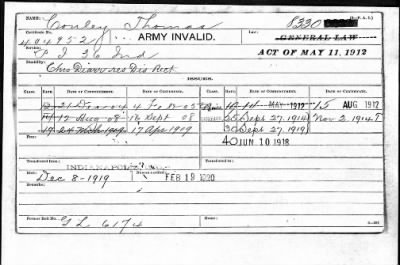 Conley Thomas 8330
Certificate No. ARMY INVALID. GENERAL LAW
494952
Service: ACT OF MAY 11, 1912
P I 36 Ind
Disability:
Chro Diarr & res Dis Rect
ISSUES.
CLASS. DATE OF COMMENCEMENT. DATE OF CERTIFICATE. CLASS. RATE. DATE OF COMMENCEMENT. DATE OF CERTIFICATE.
21 4 Feb 05 MAY 1912 15 AUG 1912
12 Aug 08 16 Sept 08 25 Sept 27, 1914 Nov 2 1914
24 1909 17 Apr 1909 30 Sept 27, 1919
40 JUN 10 1918
Transferred from
INDIANAPOLIS
Died: Dec 8-1919 FEB 19 1920
Remarks:
Former Roll No. G L 6174